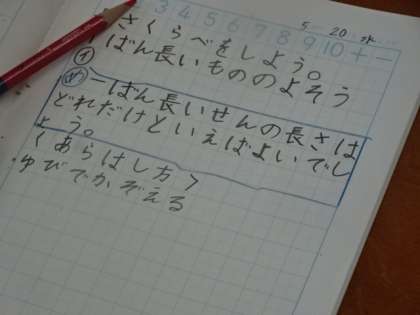 3 4 5 6 7 8 9 10 + −
5 20 水
さくらべをしよう。
① ばん長いもののよそう
め 一ばん長いせんの長さは
どれだけといえばよいでし
ょう。
〈あらはし方〉
・ゆびでかぞえる